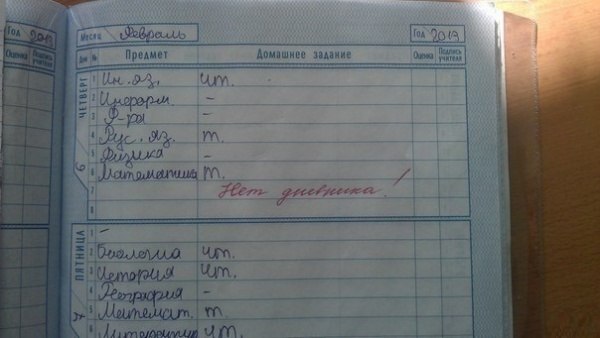 Год 2013 Месяц Февраль Год 2013
Оценка Подпись учителя Дни № Предмет Домашнее задание Оценка Подпись учителя
ЧЕТВЕРГ
6
1 Ин. яз. чт.
2 Информ –
3 Ф-ра –
4 Рус. яз. т.
5 Физика –
6 Математика т.
7 Нет дневника!
8
ПЯТНИЦА
1 –
2 Биология чт.
3 История чт.
4 География –
5 Математ. т.
6 чт.